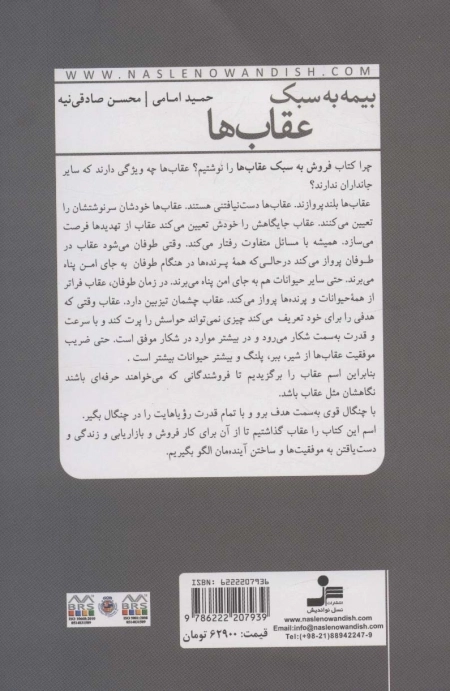 WWW.NASLENOWANDISH.COM
بیمه به سبک حمید امامی | محسن صادقی‌نیه
عقاب‌ها
چرا کتاب فروش به سبک عقاب‌ها را نوشتیم؟ عقاب‌ها چه ویژگی دارند که سایر
جانداران ندارند؟
عقاب‌ها بلندپروازند. عقاب‌ها دست‌نیافتنی هستند. عقاب‌ها خودشان سرنوشتشان را
تعیین می‌کنند. عقاب جایگاهش را خودش تعیین می‌کند عقاب از تهدیدها فرصت
می‌سازد. همیشه با مسائل متفاوت رفتار می‌کند. وقتی طوفان می‌شود عقاب در
طوفان پرواز می‌کند درحالی‌که همهٔ پرنده‌ها در هنگام طوفان به جای امن پناه
می‌برند. حتی سایر حیوانات هم به جای امن پناه می‌برند. در زمان طوفان، عقاب فراتر
از همهٔ حیوانات و پرنده‌ها پرواز می‌کند. عقاب چشمان تیزبین دارد. عقاب وقتی که
هدفی را برای خود تعریف می‌کند چیزی نمی‌تواند حواسش را پرت کند و با سرعت
و قدرت به‌سمت شکار می‌رود و در بیشتر موارد در شکار موفق است. حتی ضریب
موفقیت عقاب‌ها از شیر، ببر، پلنگ و بیشتر حیوانات بیشتر است .
بنابراین اسم عقاب را برگزیدیم تا فروشندگانی که می‌خواهند حرفه‌ای باشند
نگاهشان مثل عقاب باشد.
با چنگال قوی به‌سمت هدف برو و با تمام قدرت رؤیاهایت را در چنگال بگیر.
اسم این کتاب را عقاب گذاشتیم تا از آن برای کار فروش و بازاریابی و زندگی و
دست‌یافتن به موفقیت‌ها و ساختن آینده‌مان الگو بگیریم.
ISBN: 6222207936
9 786222 207939
قیمت: ۶۲۹۰۰ تومان
انتشارات
نسل نواندیش
www.naslenowandish.com
Email:info@naslenowandish.com
Tel:(+98-21)88942247-9
BRS
BRS